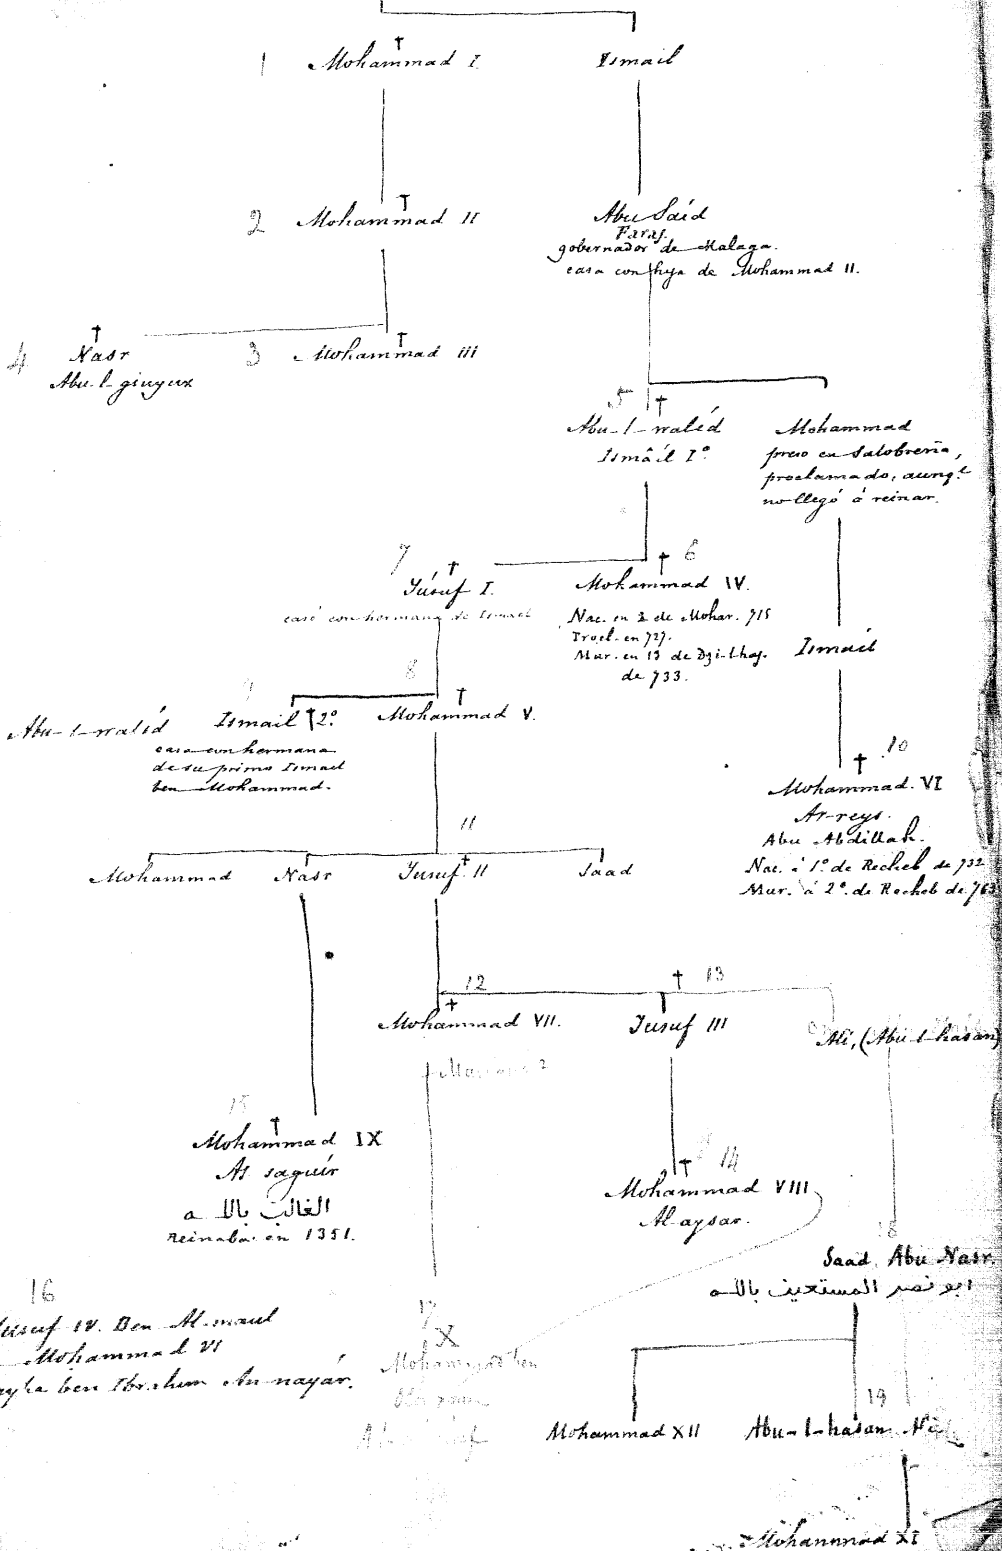 1 Mohammad I. Ismail
2 Mohammad II Abu Saíd
Faraj.
gobernador de Malaga.
casa con hija de Mohammad II.
4 Nasr 3 Mohammad III
Abu-l-giuyux
5
Abu-l-walíd Mohammad
Ismâîl Iº preso en Salobreña,
proclamado, aunq.e
no llegó á reinar.
7 6
Yúsuf I. Mohammad IV.
casó con hermana de Ismael Nac. en 2 de Mohar. 715
Procl. en 727.
Mur. en 13 de Dzi-l-haj.
de 733.
Ismail
9 8
Abu-l-walíd Ismail 2º Mohammad V.
casa con hermana
de su primo Ismael
ben Mohammad.
10
Mohammad VI
Ar-reys.
Abu Abdillah.
Nac. á 1º de Recheb de 732
Mur. á 2º de Recheb de 763
11
Mohammad Nasr Yusuf II Saad
12 13
Mohammad VII. Yusuf III Ali, (Abu-l-hasan)
15
Mohammad IX
As saguír
الغالب بالله
Reinaba en 1351.
14
Mohammad VIII
Al-aysar.
18
Saad Abu Nasr.
ابو نصر المستعين بالله
16
Yusuf IV. Ben Al-maul
Mohammad VI
ben Ibrahim An-nayár.
17
X
Mohammad ben
19
Mohammad XII Abu-l-hasan
Mohammad XI